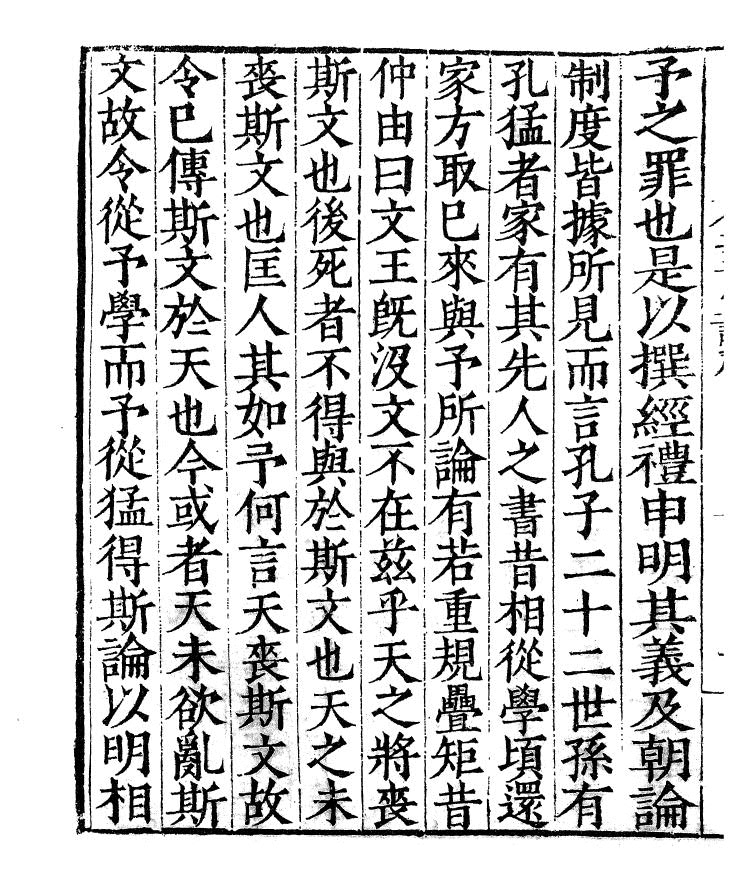 予之罪也是以撰經禮申明其義及朝論
制度皆據所見而言孔子二十二世孫有
孔猛者家有其先人之書昔相從學頃還
家方取已來與予所論有若重規疊矩昔
仲由曰文王旣沒文不在茲乎天之將喪
斯文也後死者不得與於斯文也天之未
喪斯文也匡人其如予何言天喪斯文故
令已傳斯文於天也今或者天未欲亂斯
文故令從予學而予從猛得斯論以明相